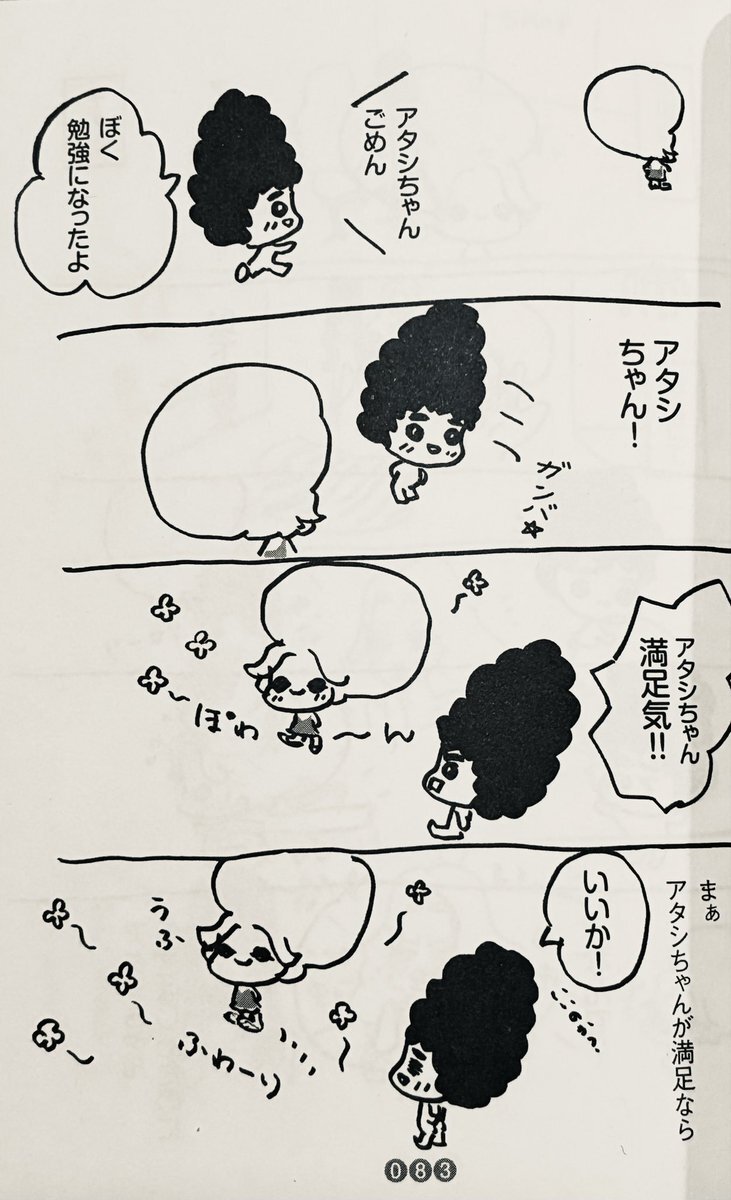 アタシちゃん
ごめん
ぼく
勉強になったよ
アタシ
ちゃん！
ガンバ
アタシちゃん
満足気!!
ぽわ
〜ん
まぁ
アタシちゃんが満足なら
いいか！
うふ
ふわーり
083